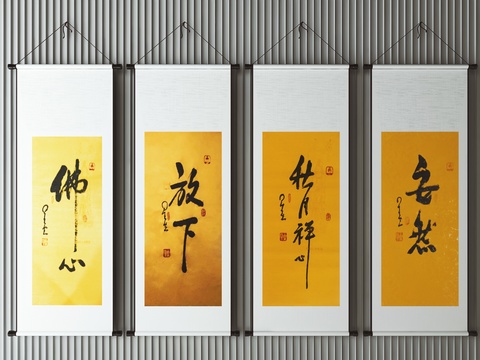 佛心
放下
秋月禅心
安然